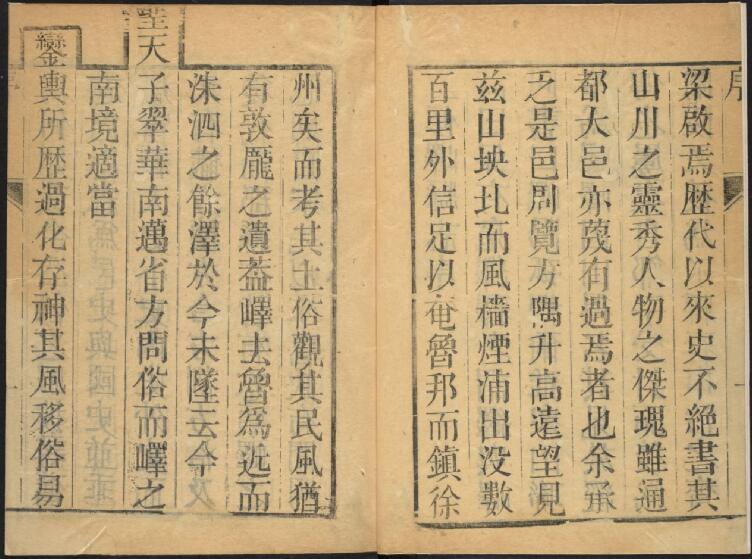 梁啟焉歷代以來史不絕書其
山川之靈秀人物之傑瑰雖通
都大邑亦蔑有過焉者也余承
之是邑周覽方隅升高遠望見
茲山坱圠而風檣煙浦出没數
百里外信足以奄魯邦而鎮徐
州矣而考其土俗觀其民風猶
有敦龐之遺葢嶧去魯爲近而
洙泗之餘澤於今未墜云今
聖天
子翠華南邁省方問俗而嶧之
南境適當
鑾輿所歷過化存神其風移俗易